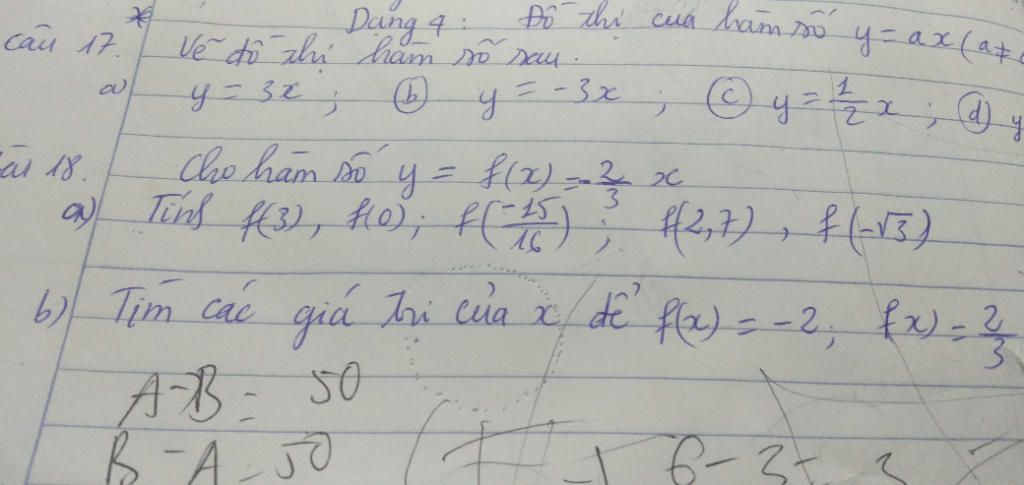 * Dạng 4: Đồ thị của hàm số y = ax (a ≠
Câu 17. Vẽ đồ thị hàm số sau.
a) y = 3x ; b) y = -3x ; c) y = 1/2 x ; d) y
18. Cho hàm số y = f(x) = -2/3 x
a) Tính f(3), f(0); f(-15/16) ; f(2,7) , f(-√3)
b) Tìm các giá trị của x để f(x) = -2; f(x) = 2/3
A - B = 50
B - A = 50
6 - 3